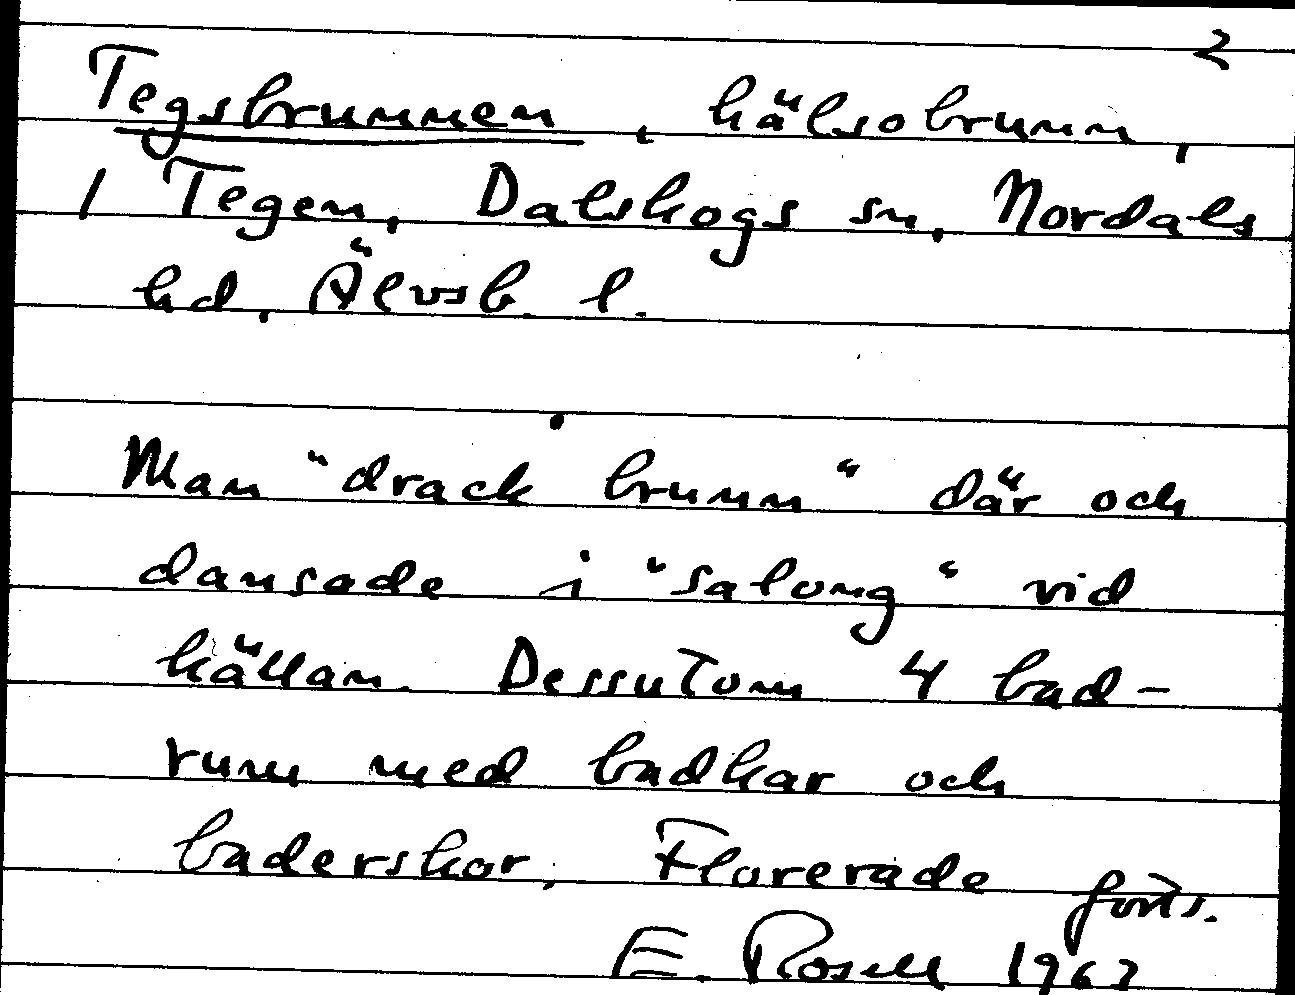 2
Tegsbrunnen, hälsobrunn,
/ Tegen, Dalskogs sn, Nordals
hd, Älvsb. l.
Man "drack brunn" där och
dansade i "salong" vid
källan. Dessutom 4 bad-
rum med badkar och
baderskor. Florerade forts.
E. Rosell 1962